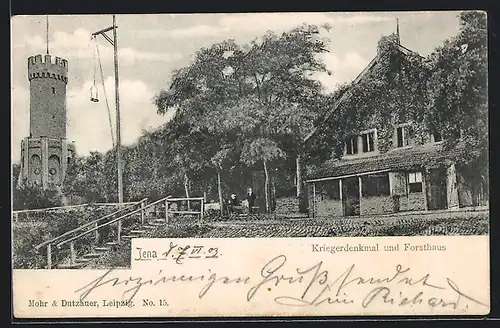 Jena d. 7. VI. 03
Kriegerdenkmal und Forsthaus
herzinnigen Gruß sendet
Dein Richard
Mohr & Dutzauer, Leipzig. No. 15.